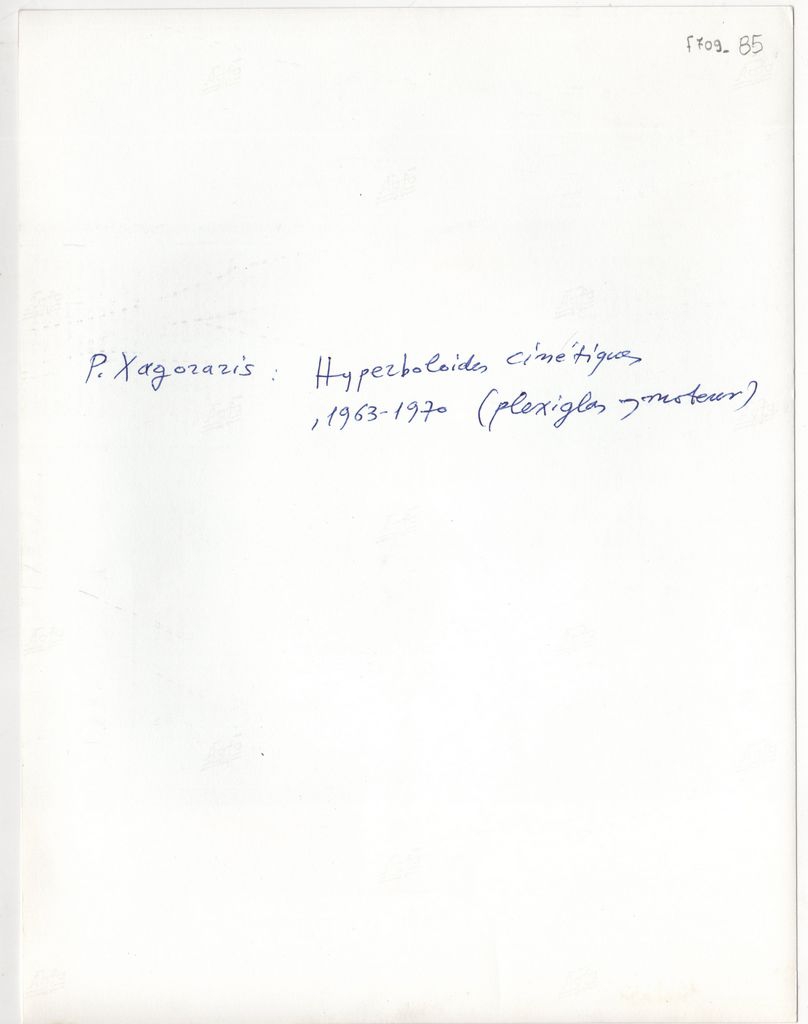 F709_ 85
P. Xagoraris : Hyperboloides cinétiques
, 1963-1970 (plexiglas, moteur)